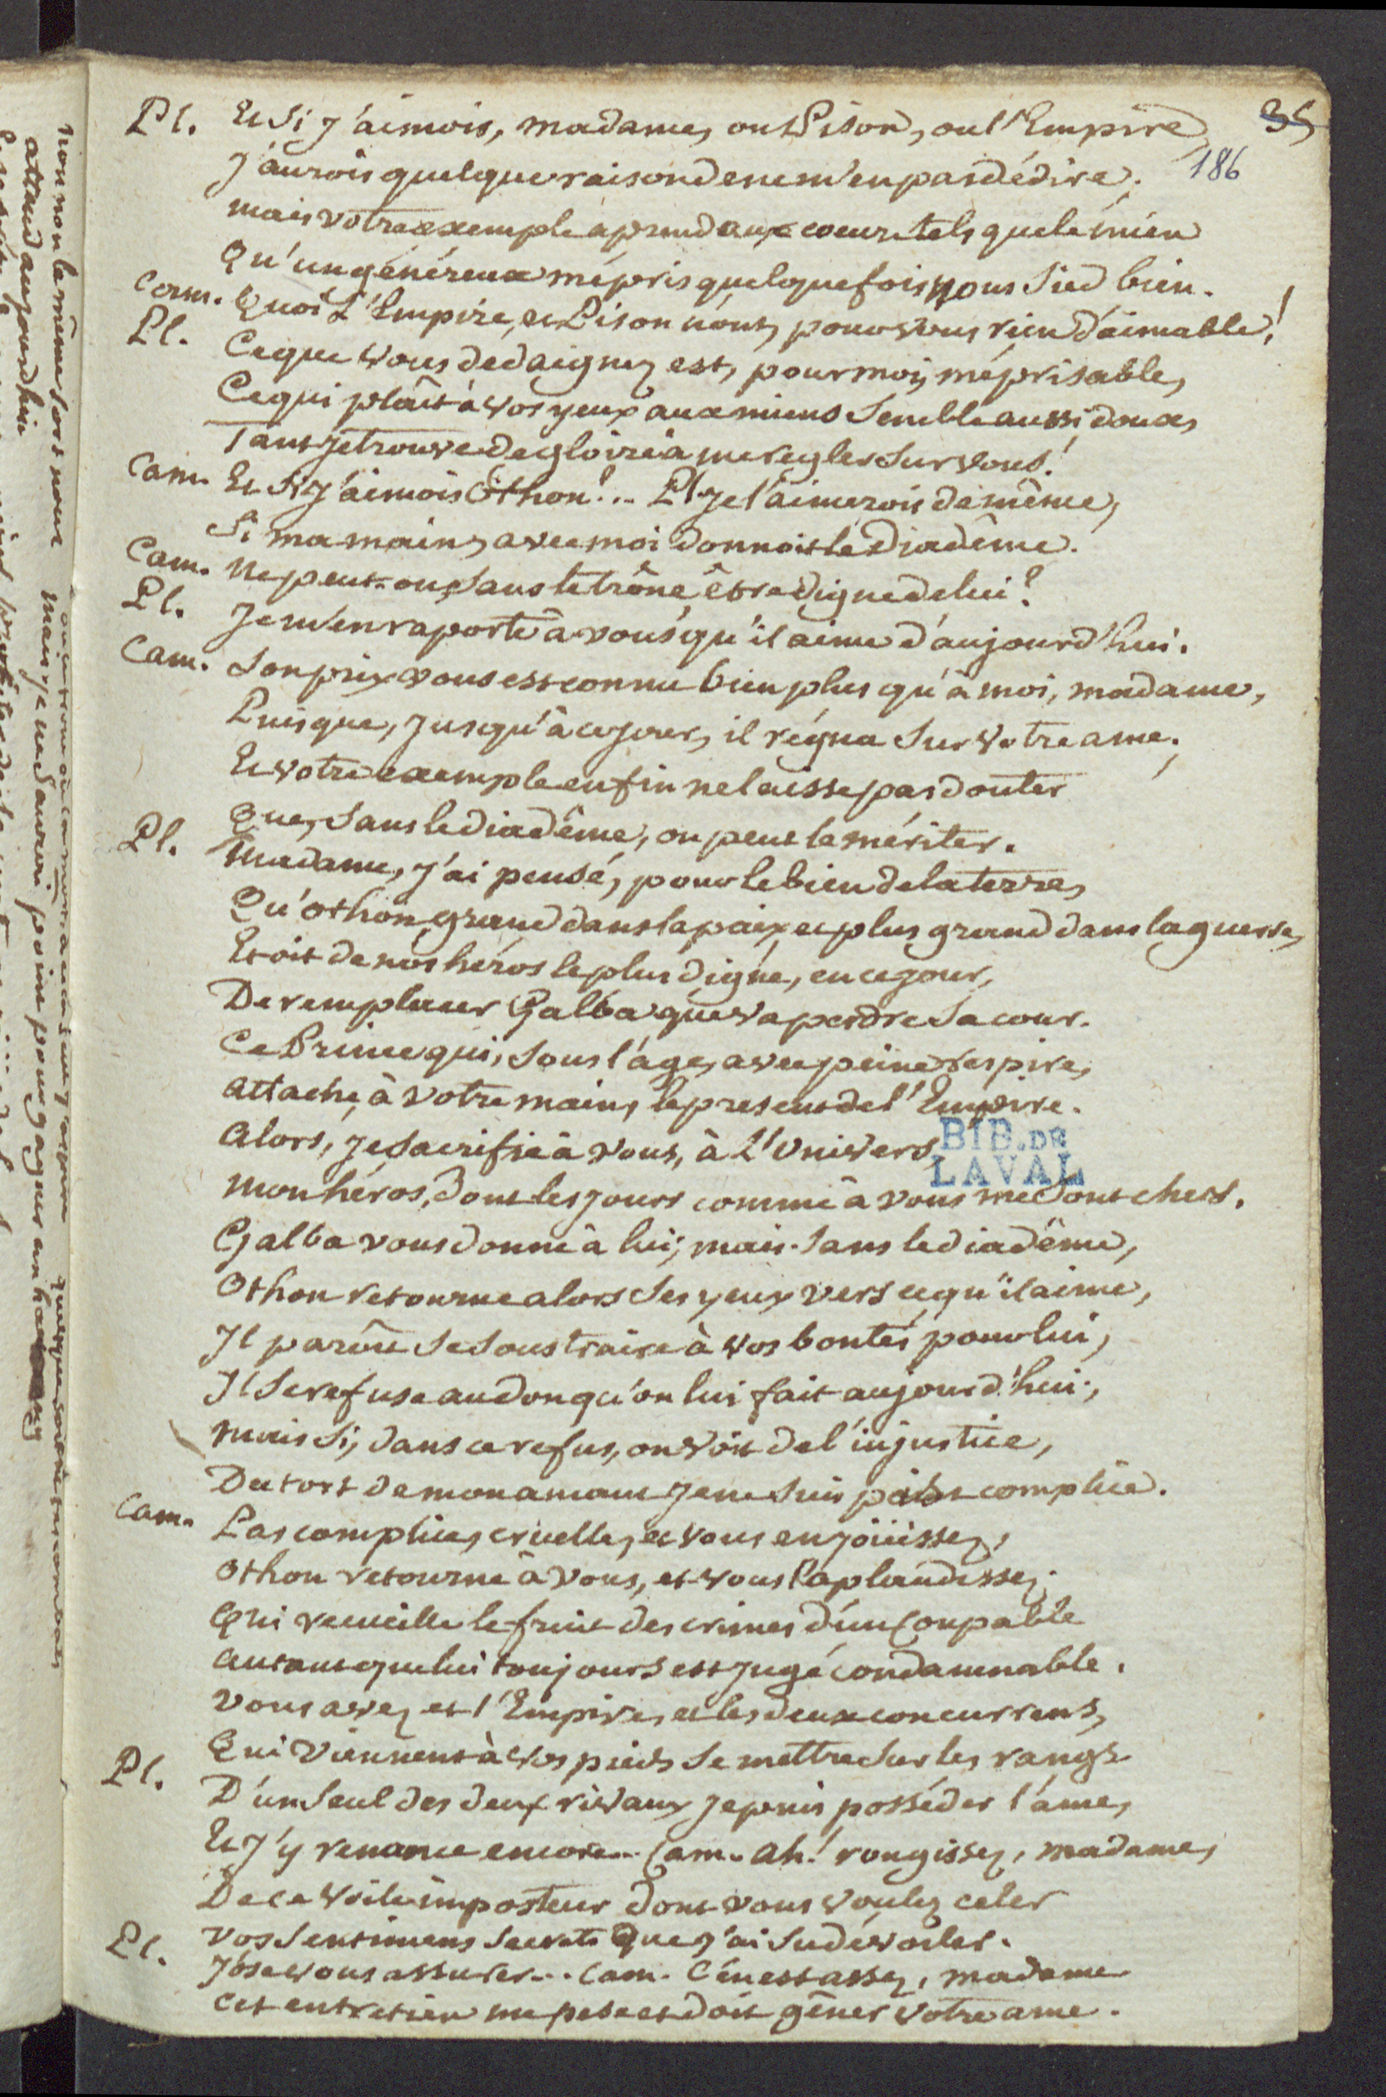 35
186
Pl. Et si j'aimois, madame, ou Pison, ou l'Empire
J'aurois quelque raison de ne m'en pas dédire.
mais votre exemple aprend aux coeurs tels que le mien
Qu'un généreux mépris quelquefois nous sied bien.
Cam. Quoi L'Empire, et Pison n'ont, pour vous rien d'aimable!
Pl. Ce que vous dedaignez est, pour moi, méprisable,
Ce qui plaît à vos yeux aux miens semble aussi doux,
Tant je trouve de gloire à me regler sur vous!
Cam. Et si j'aimois Othon?... Pl. Je l'aimerois de même,
Si ma main, avec moi donnoit le Diadême.
Cam. Ne peut-on, sans le trône être digne de lui?
Pl. Je m'en raporte à vous qu'il aime d'aujourd'hui.
Cam. Son prix vous est connu bien plus qu'à moi, madame,
Puisque, jusqu'à ce jour, il régna sur votre ame;
Et votre exemple enfin ne laisse pas douter
Que, sans le diadême, on peut le mériter.
Pl. Madame, j'ai pensé, pour le bien de la terre,
Qu'othon, grand dans la paix et plus grand dans la guerre,
Etoit de nos héros le plus digne, en ce jour,
De remplacer Galba que va perdre sa cour.
Ce Prince qui, sous l'âge, avec peine respire,
attache, à votre main, le present de l'Empire.
Alors, je sacrifie à vous, à L'Univers,
BIB. DE
LAVAL
Mon héros, dont les jours comme à vous me sont chers.
Galba vous donne à lui; mais sans le diadême,
Othon retourne alors ses yeux vers ce qu'il aime,
Il paroît se soustraire à vos bontés pour lui,
Il se refuse au don qu'on lui fait aujourd'hui;
Mais si, dans ce refus, on voit de l'injustice,
Du tort de mon amant je ne suis point complice.
Cam. Pas complice, cruelle, et vous en joüissez,
Othon retourne à vous, et vous l'aplaudissez.
Qui recueille le fruit des crimes d'un Coupable
autant que lui toujours est jugé condamnable.
Vous avez et l'Empire, et les deux concurrens,
Qui viennent à vos pieds se mettre sur les rangs
Pl. D'un seul des deux rivaux je puis posséder l'âme,
Et j'y renonce encore... Cam. Ah! rougissez, madame,
De ce voile imposteur dont vous voulez celer
Vos sentimens secrets que j'ai su dévoiler.
Pl. J'ose vous assurer... Cam. C'en est assez, madame
Cet entretien me pese et doit gêner votre ame.
non non le même sort nous
attend aujourdhui
mais je ne saurai point pour gagner un